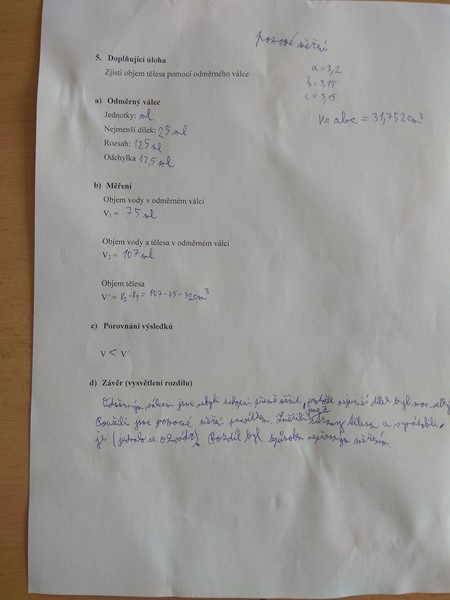 pomocné měření
5. Doplňující úloha
Zjisti objem tělesa pomocí odměrného válce
a = 3,2
b = 3,15
c = 3,15
V = abc = 31,752 cm³
a) Odměrný válec
Jednotky: ml
Nejmenší dílek: 25 ml
Rozsah: 125 ml
Odchylka 12,5 ml
b) Měření
Objem vody v odměrném válci
V₁ = 75 ml
Objem vody a tělesa v odměrném válci
V₂ = 107 ml
Objem tělesa
V' = V₂ - V₁ = 107 - 75 = 32 cm³
c) Porovnání výsledků
V < V'
d) Závěr (vysvětlení rozdílu)
Odměrným válcem jsme nebyli schopni přesně měřit, protože nejmenší dílek byl moc velký
Použili jsme pomocné měření pravítkem. Změřili jsme strany tělesa a vynásobili
je (jednalo se o kvádr). Rozdíl byl způsoben nepřesným měřením